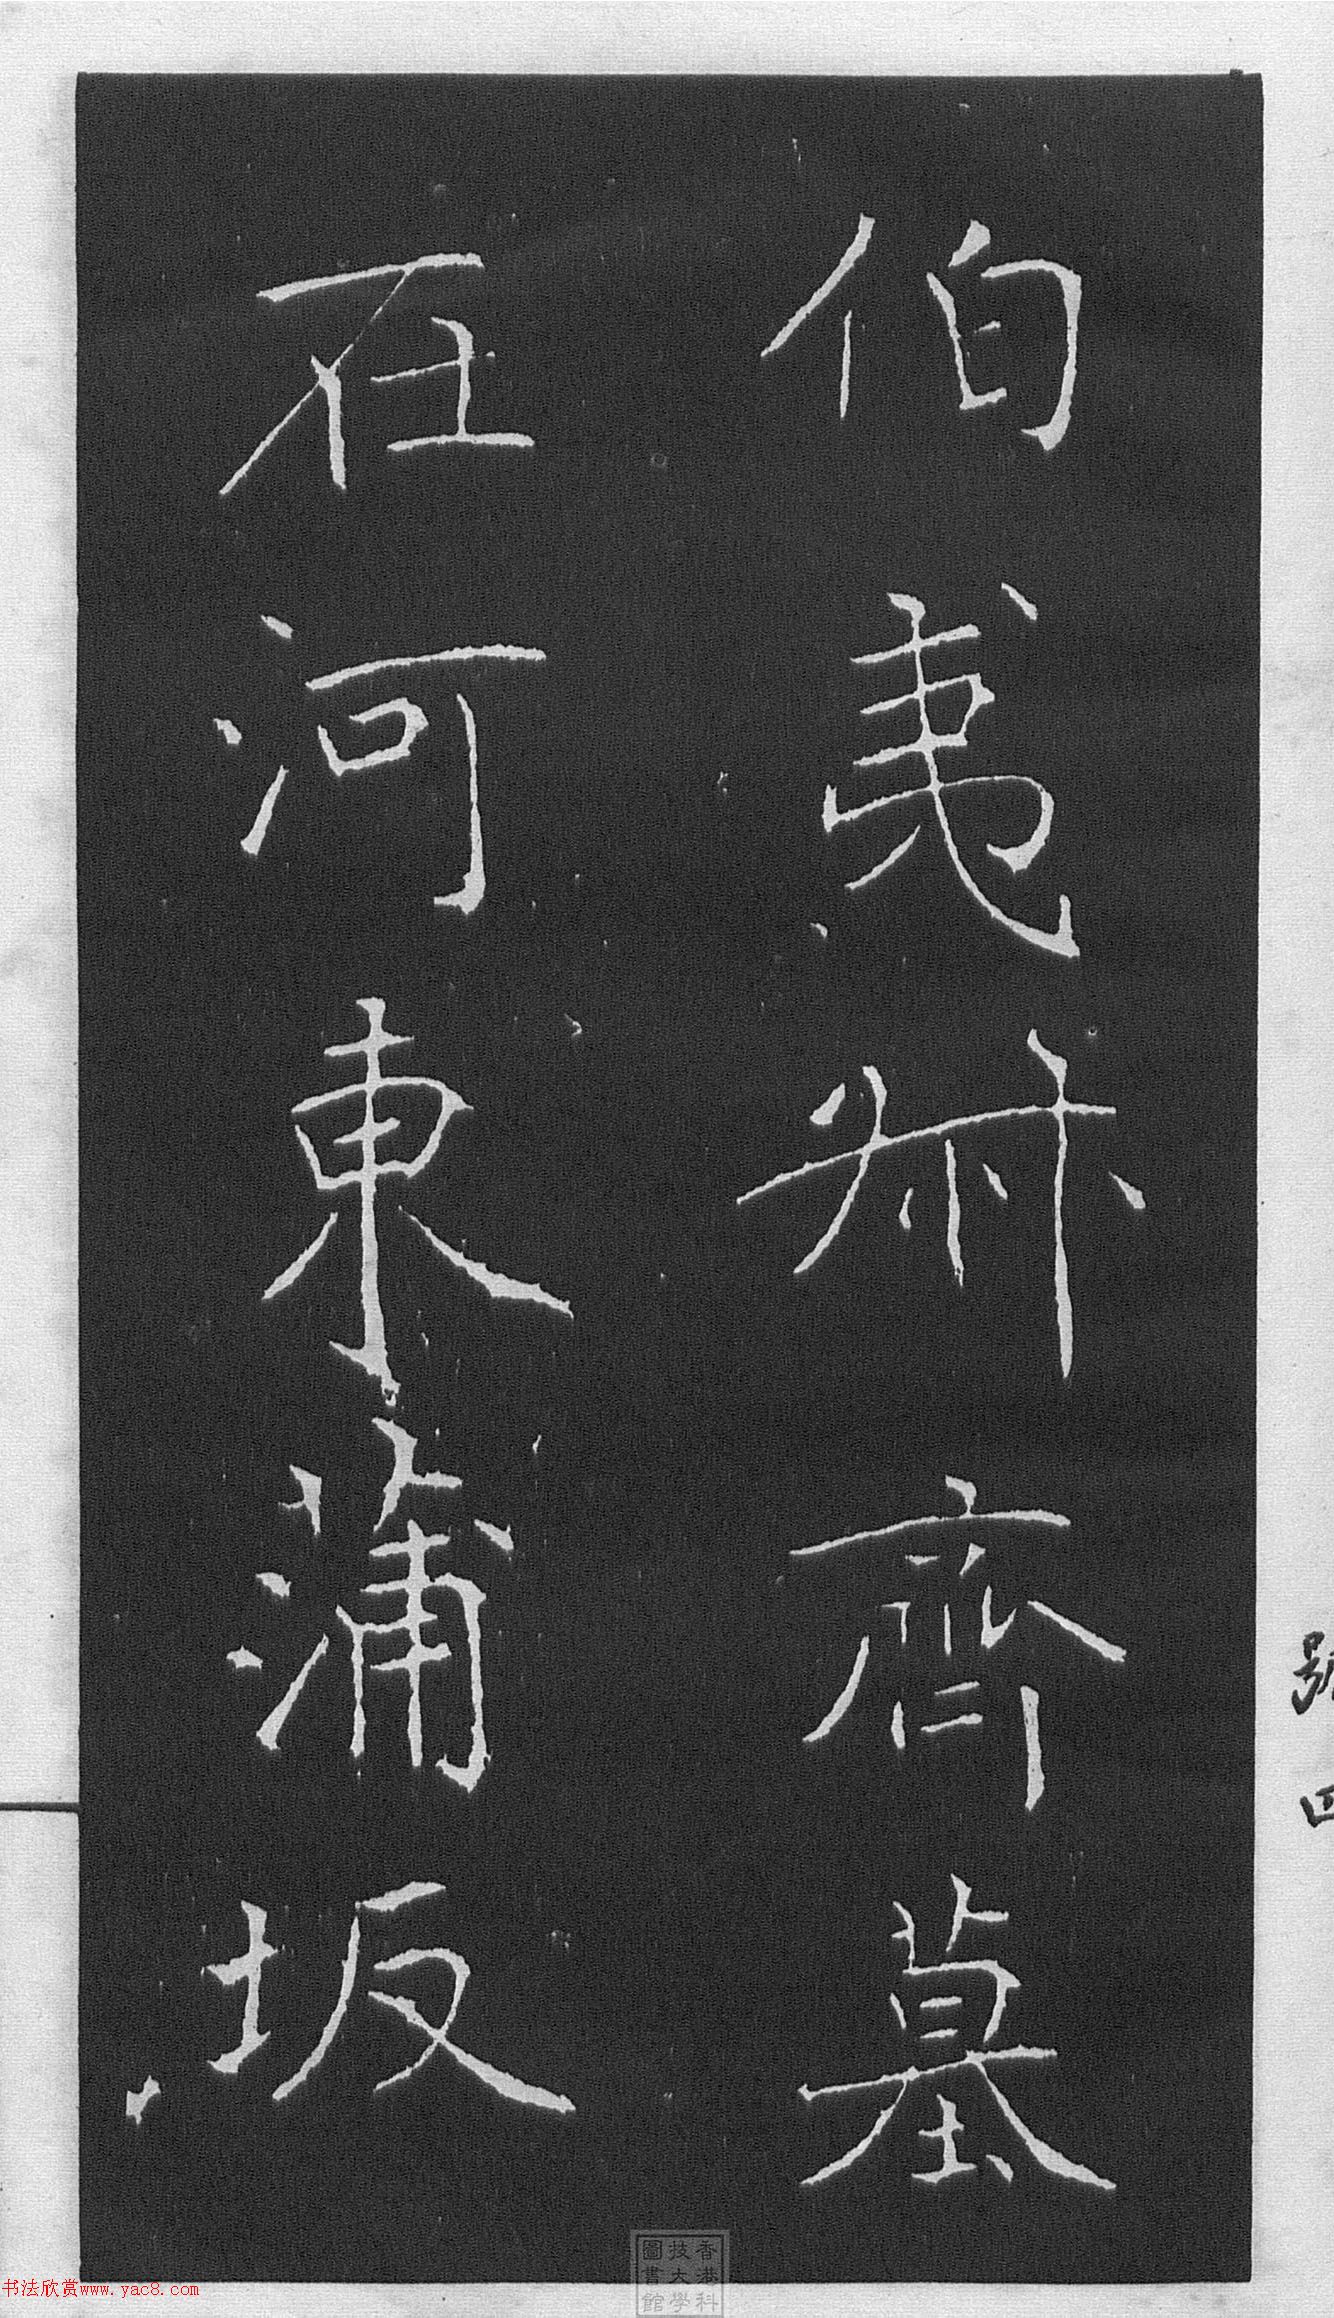 伯夷叔齊墓
在河東蒲坂
號四
书法欣赏www.yac8.com
香港科
技大學
圖書館